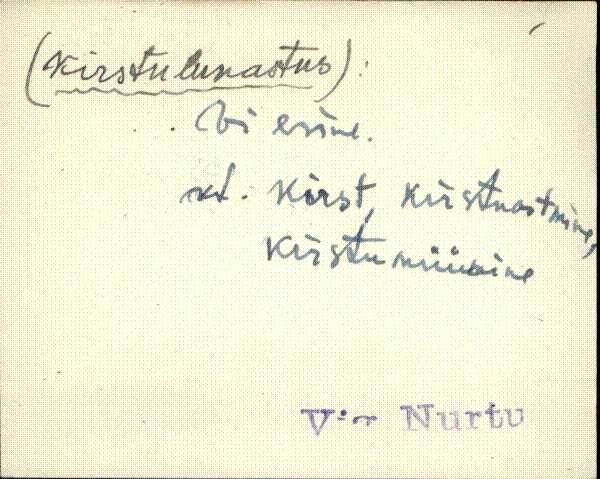 (Kirstulunastus):
Ei esine.
vt. Kirst, Kirstuostmine,
Kirstumüümine
V:r Nurtu